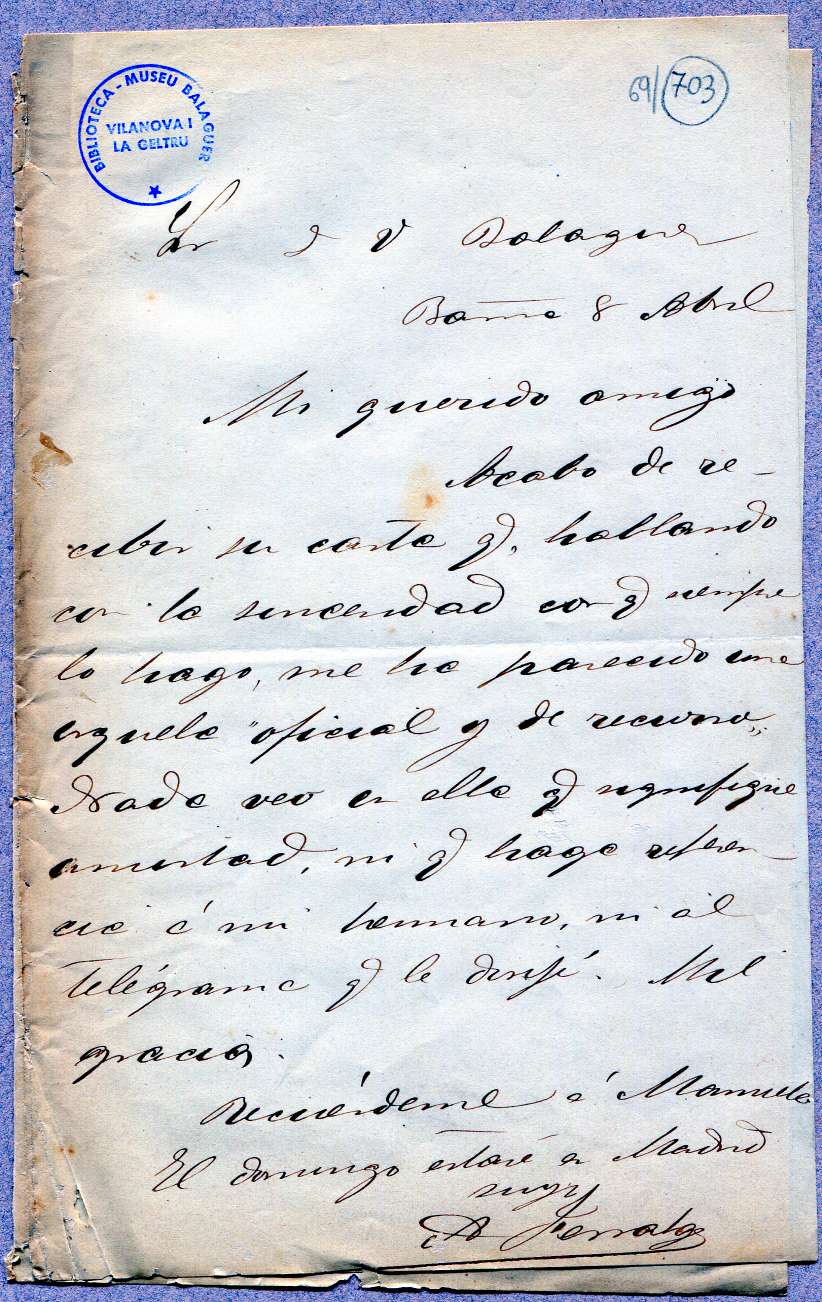 BIBLIOTECA - MUSEU BALAGUER
VILANOVA I
LA GELTRU
69/703
Sr D V Balaguer
Barna 8 Abril
Mi querido amigo
Acabo de re-
cibir su carta q, hablando
con la sinceridad con q siempre
lo hago, me ha parecido una
esquela "oficial y de recurso".
Nada veo en ella q signifique
amistad, ni q haga referen-
cia á mi hermano, ni al
telégrama q le dirijí. Mil
gracias.
Recuérdeme á Manuela
El domingo estaré en Madrid
suyo
A Ferratges